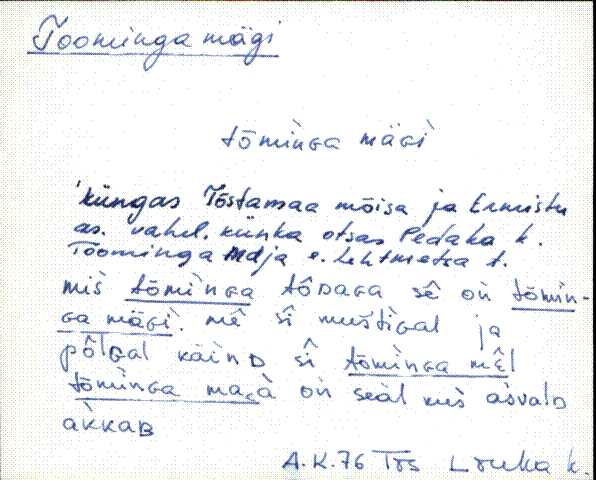 Toominga mägi
tōminga mäGì
küngas Tõstamaa mõisa ja Ermistu
as. vahel. künka otsas Pedaka k.
Toominga ndja e. Lehtmetsa t.
mis tōmìnga tôDaGa sê oǹ tōmìn-
ga mäGì. mê sî mustìgal ja
pôlGal käinD sî tōmìnga mêl
tōmìnga
oǹ seàl
asvalD
àkkaB
A.K.76 Tõs Lõuka k.